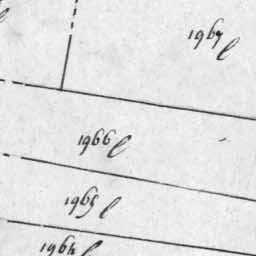 1967 l
1966 l
1965 l
1964 l